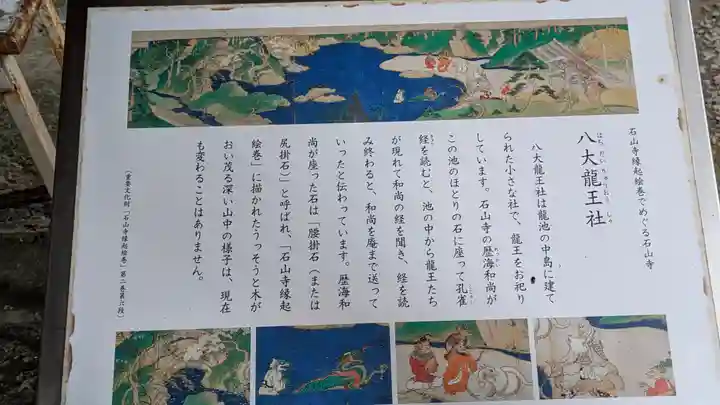 石山寺縁起絵巻でめぐる石山寺
八大龍王社
はち だい りゅうおう しゃ
八大龍王社は龍池の中島に建て
られた小さな社で、龍王をお祀り
しています。石山寺の歴海和尚が
この池のほとりの石に座って孔雀
経を読むと、池の中から龍王たち
が現れて和尚の経を聞き、経を読
み終わると、和尚を庵まで送って
いったと伝わっています。歴海和
尚が座った石は「腰掛石（または
尻掛石）」と呼ばれ、「石山寺縁起
絵巻」に描かれたうっそうと木が
おい茂る深い山中の様子は、現在
も変わることはありません。
（重要文化財「石山寺縁起絵巻」第二巻第六段）